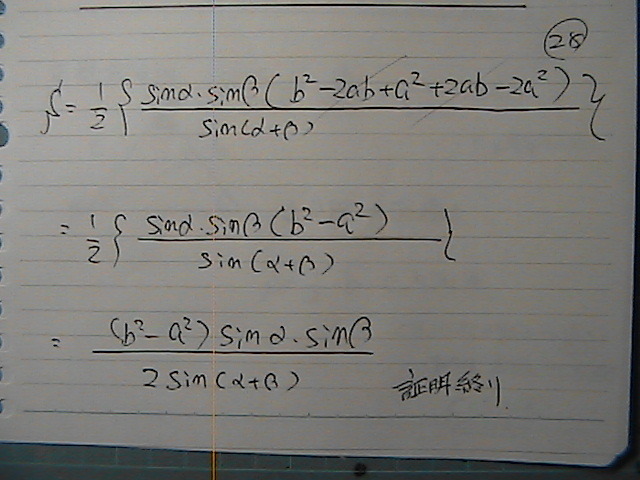 28
S = 1/2 { sinα・sinβ ( b² − 2ab + a² + 2ab − 2a² ) / sin(α+β) }
= 1/2 { sinα・sinβ ( b² − a² ) / sin(α+β) }
= (b² − a²) sinα・sinβ / 2 sin(α+β)
証明終り